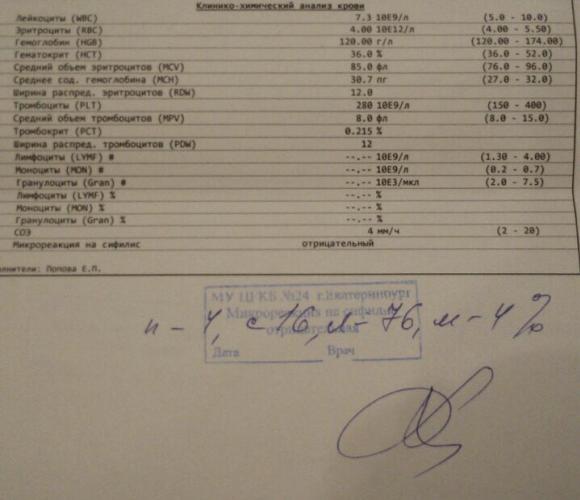 Клинико-химический анализ крови
Лейкоциты (WBC) 7.3 10E9/л (5.0 - 10.0)
Эритроциты (RBC) 4.00 10E12/л (4.00 - 5.50)
Гемоглобин (HGB) 120.00 г/л (120.00 - 174.00)
Гематокрит (HCT) 36.0 % (36.0 - 52.0)
Средний объем эритроцитов (MCV) 85.0 фл (76.0 - 96.0)
Среднее сод. гемоглобина (MCH) 30.7 пг (27.0 - 32.0)
Ширина распред. эритроцитов (RDW) 12.0
Тромбоциты (PLT) 280 10E9/л (150 - 400)
Средний объем тромбоцитов (MPV) 8.0 фл (8.0 - 15.0)
Тромбокрит (PCT) 0.215 %
Ширина распред. тромбоцитов (PDW) 12
Лимфоциты (LYMF) # --.-- 10E9/л (1.30 - 4.00)
Моноциты (MON) # --.-- 10E9/л (0.2 - 0.7)
Гранулоциты (Gran) # --.-- 10E3/мкл (2.0 - 7.5)
Лимфоциты (LYMF) % --.-- %
Моноциты (MON) % --.-- %
Гранулоциты (Gran) % --.-- %
СОЭ 4 мм/ч (2 - 20)
Микрореакция на сифилис отрицательный
лнители: Попова Е.П.
МУ ЦГКБ №24 г.Екатеринбург
Микрореакция на сифилис
отрицательная
п - 4, с - 16, л - 76, м - 4 %
Дата Врач